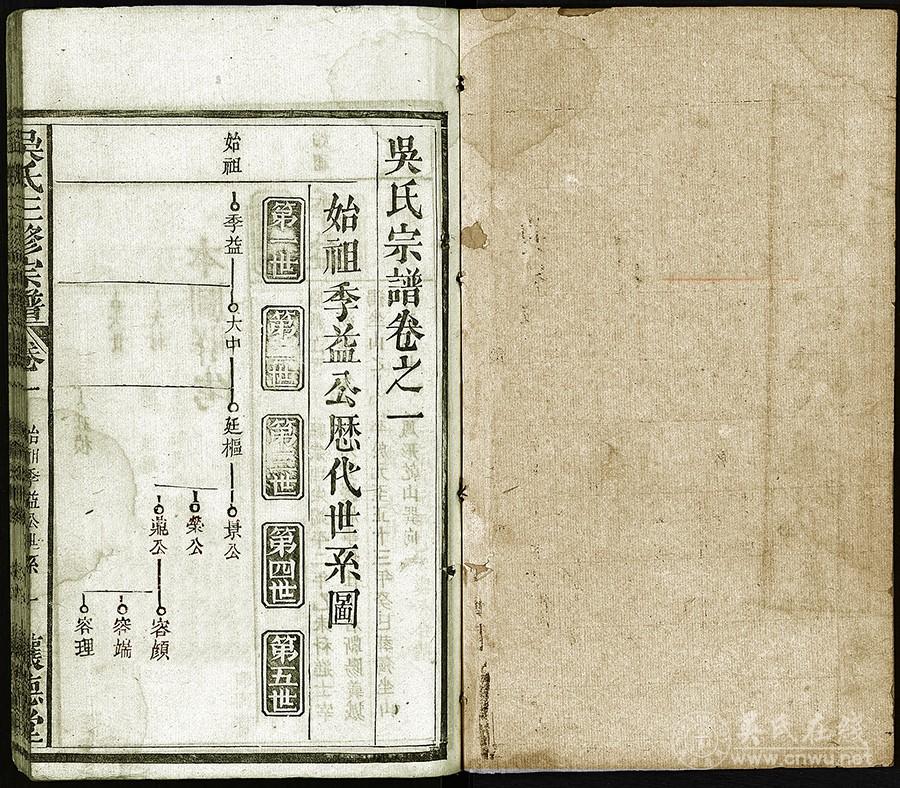 吳氏宗譜卷之一
始祖季益公歷代世系圖
第一世
第二世
第三世
第四世
第五世
始祖
季益
大中
廷樞
景公
榮公
鼎公
容顏
容端
容理
吳氏三修宗譜
卷一
始祖季益公世系
一
吴氏在线
www.cnwu.net